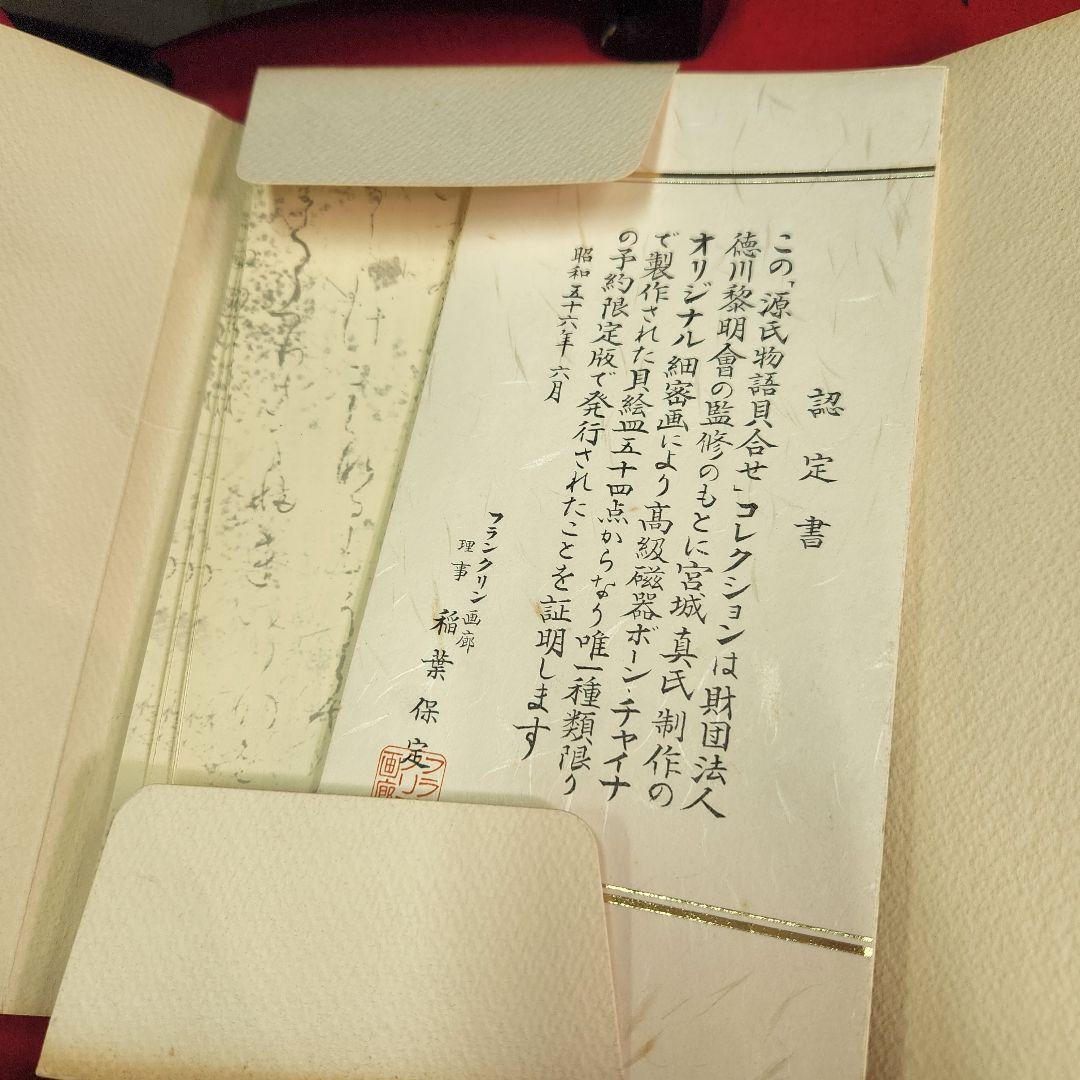 認定書
この「源氏物語貝合せ」コレクションは財団法人
徳川黎明會の監修のもとに宮城真氏制作の
オリジナル細密画により高級磁器ボーン・チャイナ
で製作された貝絵皿五十四点からなり唯一種類限り
の予約限定版で発行されたことを証明します
昭和五十六年六月
フランクリン画廊
理事
稲葉保定